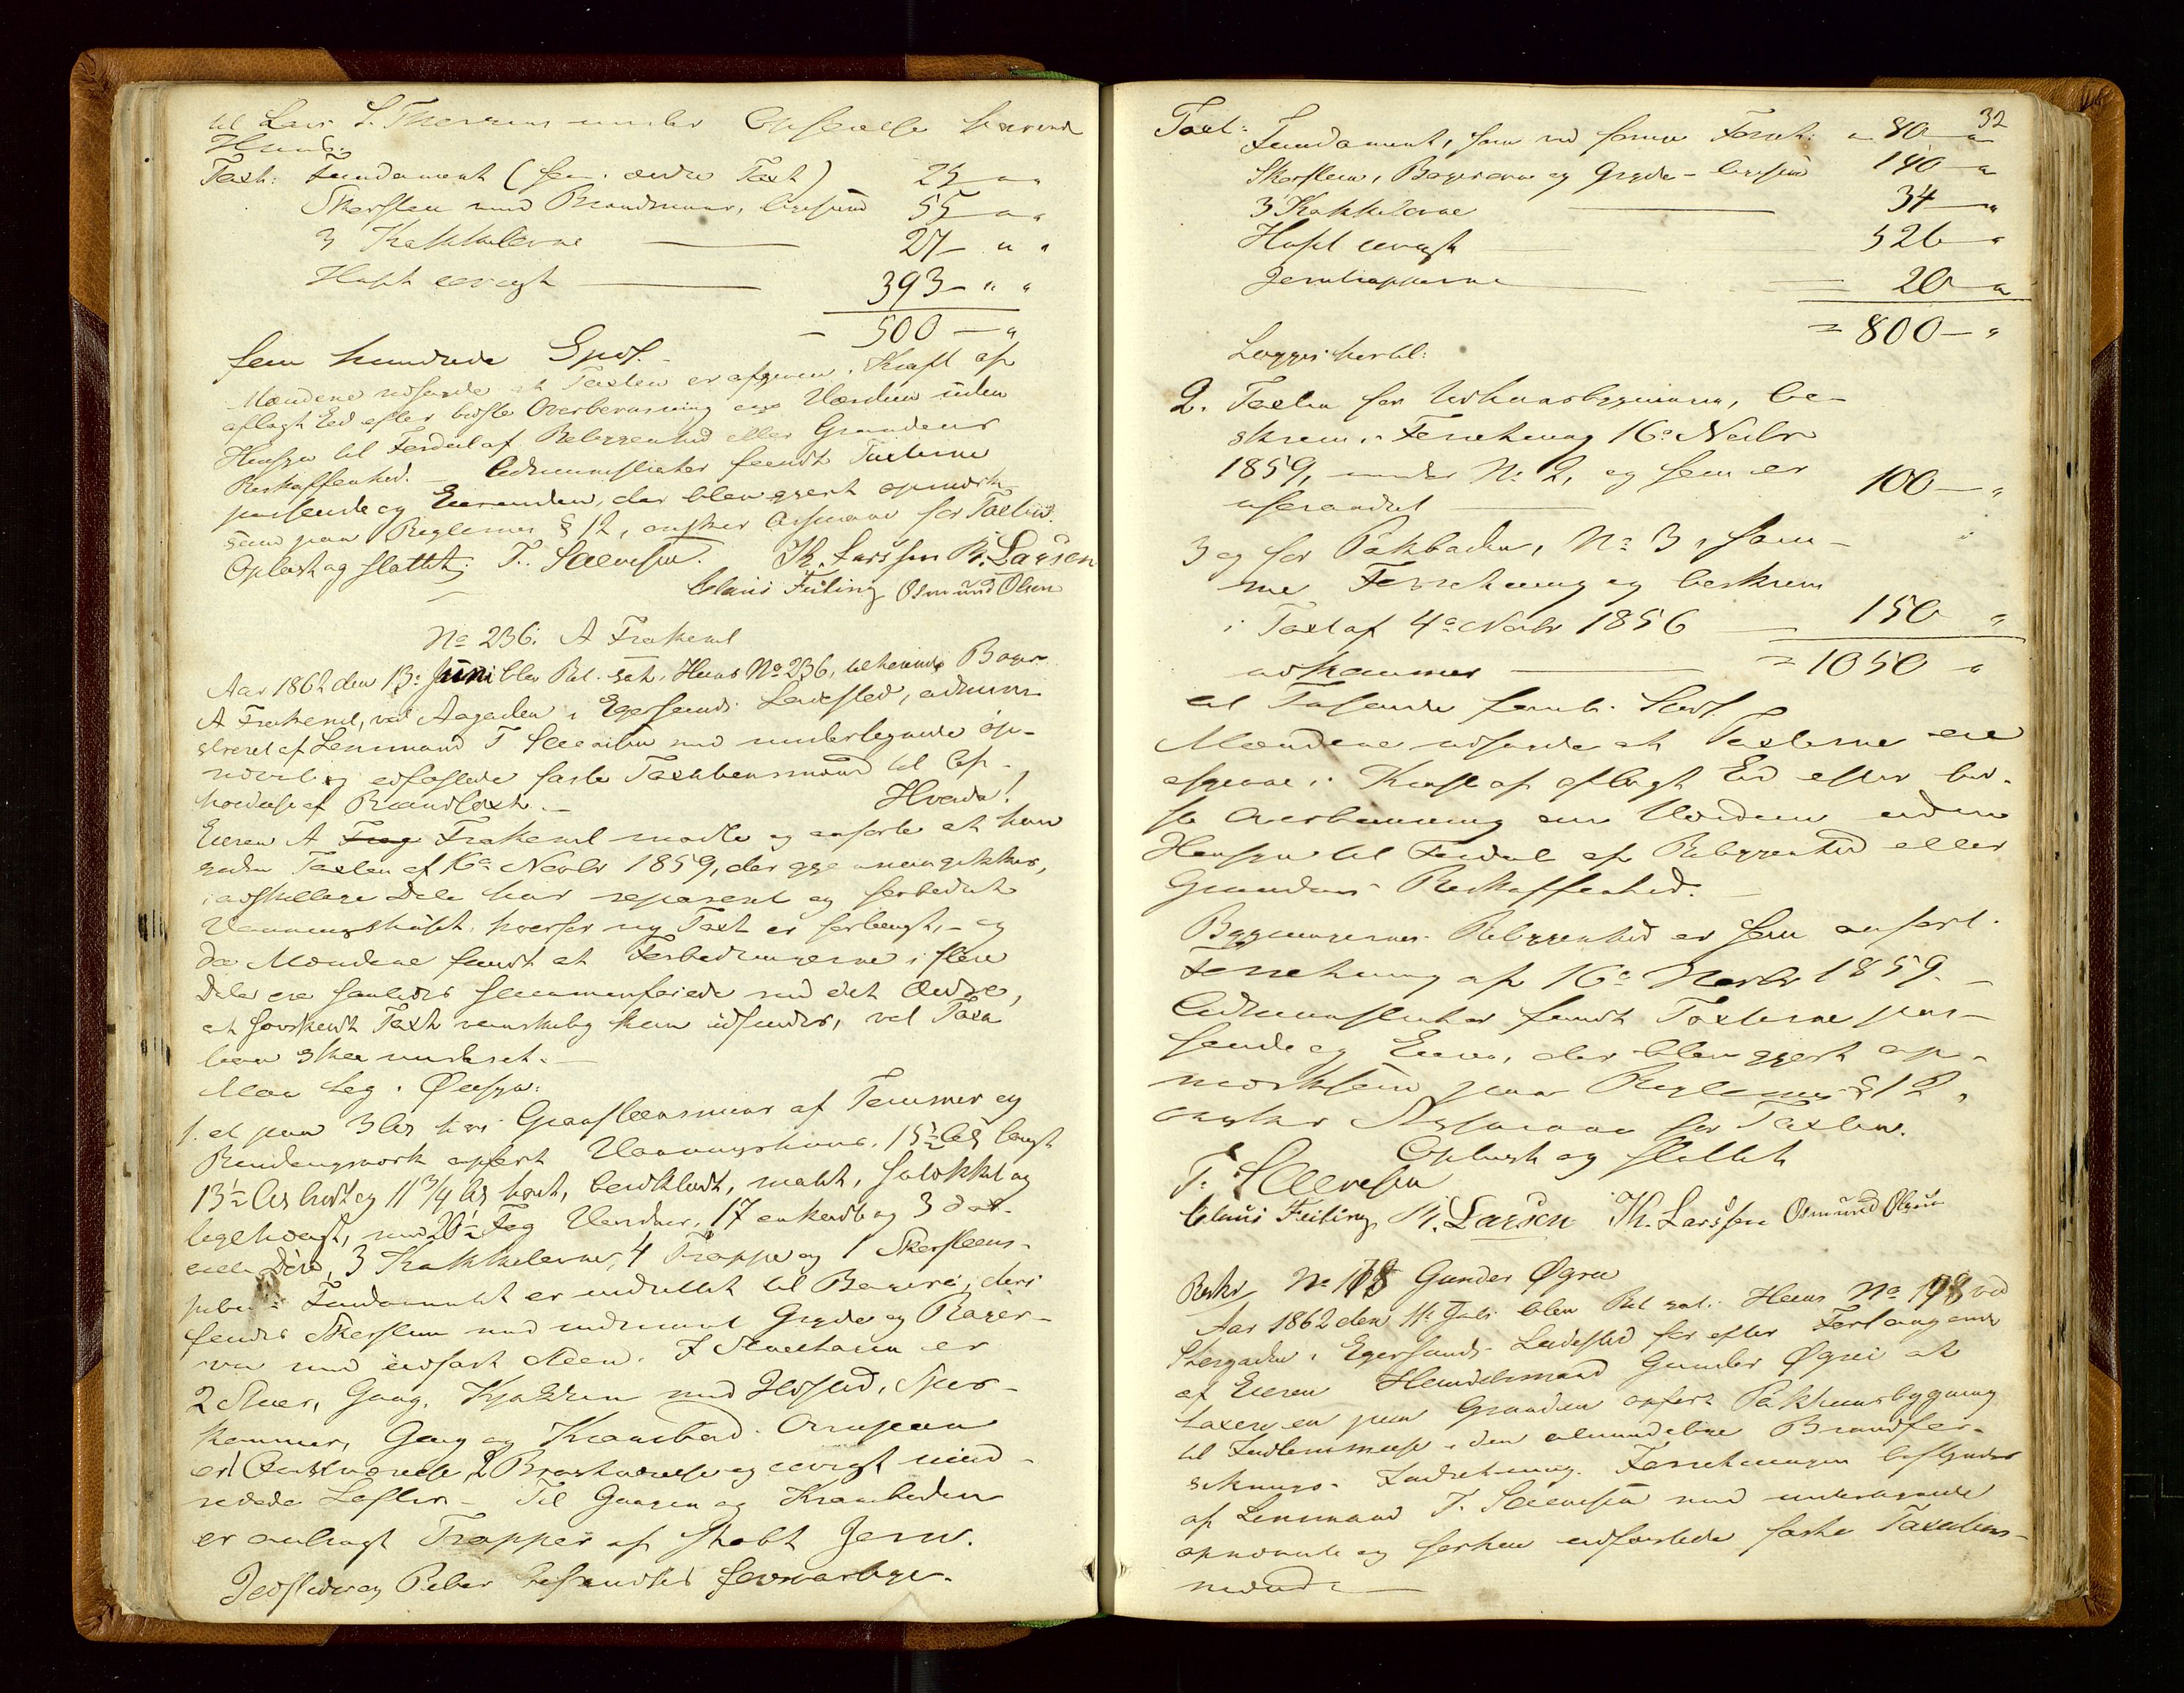 til Lars L. Thorsens under Opførelse værende
Huus:
Taxt: Fundament (som i ældre Taxt) 25 " "
Skorsteen med Brandmuur, ligesaa 55 " "
3 Kakkelovne 27 " "
Huset øvrigt 393 " "
500 "
fem hundrede Spd.
Mændene udsagde at Taxten er afgiven i Kraft af
aflagt Ed efter bedste Overbeviisning om Værdien uden
Hensyn til Fordeel af Beliggenhed eller Grundens
Beskaffenhed. Administrator fandt Taxterne
passende og Eieren, der blev gjort opmærk-
som paa Reglemes § 12, ønsker Assurance for Taxten.
Oplæst og sluttet. T. Sleevesen. Th. Larssen K. Larsen
Claus Feiting Osmund Olsen
No 236. A Frakend
Aar 1862 den 13de Juni blev Ret sat i Huus No 236, tilhørende Bager
A Frakend, ved Aagaden i Egersunds Ladested, admini-
streret af Lensmand T Sleevesen med undertegnede op-
nævnte og edfæstede faste Taxtbensmænd til Af-
holdelse af Brandtaxt. Hvorda!
Eieren A Frakend mødte og anførte at han
siden Taxten af 16de Novbr 1859, der gjennemgikkes,
i adskillige Dele har repareret og forbedret
Vaaningshuset, hvorfor ny Taxt er forlangt, og
da Mændene fandt at Forbedringerne i flere
Dele ere saaledes sammenføiede med det Ældre,
at særskilt Taxt vanskelig kan udfindes, vil Taxa-
tion skee underet.
Man tog i Øiesyn:
1. et paa 3 Al høi Graasteensmuur af Tømmer og
Bindingsverk opført Vaaningshuus, 15½ Al langt
13½ Al bredt og 11¾ Al høit, bordklædt, malt, stolokket og
tegltækt, med 20 Fag Vinduer, 17 enkelte og 3 dob-
belte Døre, 3 Kakkelovne, 4 Trapper og 1 Skorsteens-
pibe. Fundamentet er indrettet til Bageri, deri
findes Skorsteen med indmuret Gryde og Bager-
ovn med indført Steen. I Stueetagen er
2 Stuer, Gang, Kjøkken med Ildsted, Spis-
kammer, Gang og Krambod. Ovenpaa
er 1 Qvistværelse, 2 Brystværelser og øvrigt uind-
redede Lofter. Til Gangen og Kramboden
er anbragt Trapper af støbt Jern.
Ildsteder og Piber befandtes forsvarlige.
32
Taxt: Fundament, som ved forrige Forret: 80 "
Skorsteen, Bagerovn og Gryde ligesaa 140 "
3 Kakkelovne 34 "
Huset øvrigt 526 "
Jerntrapperne 20 "
= 800 "
Lægges hertil:
2. Taxten for Udhuusbygningen, be-
skreven i Forretning 16de Novbr
1859, under No 2, og som er
uforandret 100 "
3 og for Pakboden, No 3, sam-
me Forretning og beskreven
i Taxt af 4de Novbr 1856 150 "
udkommer = 1050 "
et Tusende femti Spd.
Mændene udsagde at Taxterne ere
afgivne i Kraft af aflagt Ed efter bed-
ste Overbeviisning om Værdien uden
Hensyn til Fordeel af Beliggenhed eller
Grundens Beskaffenhed.
Bygningernes Beliggenhed er som anført i
Forretning af 16de Novbr 1859.
Administrator fandt Taxterne pas-
sende og Eieren, der blev gjort op-
mærksom paa Reglemes § 12,
ønsker Assurance for Taxten.
Oplæst og sluttet
T. Sleevesen
Claus Feiting K. Larsen Th. Larssen Osmund Olsen
Beskr No 178 Gunder Øgrei
Aar 1862 den 11te Juli blev Ret sat i Huus No 178 ved
Storgaden i Egersunds Ladested for efter Forlangende
af Eieren Handelsmand Gunder Øgrei at
taxere en paa Grunden opført Pakhuusbygning
til Indlemmelse i den almindelige Brandfor-
siknings-Indretning. Forretningen bestyredes
af Lensmand T. Sleevesen med undertegnede
opnævnte og forhen edfæstede faste Taxtbens-
mænd